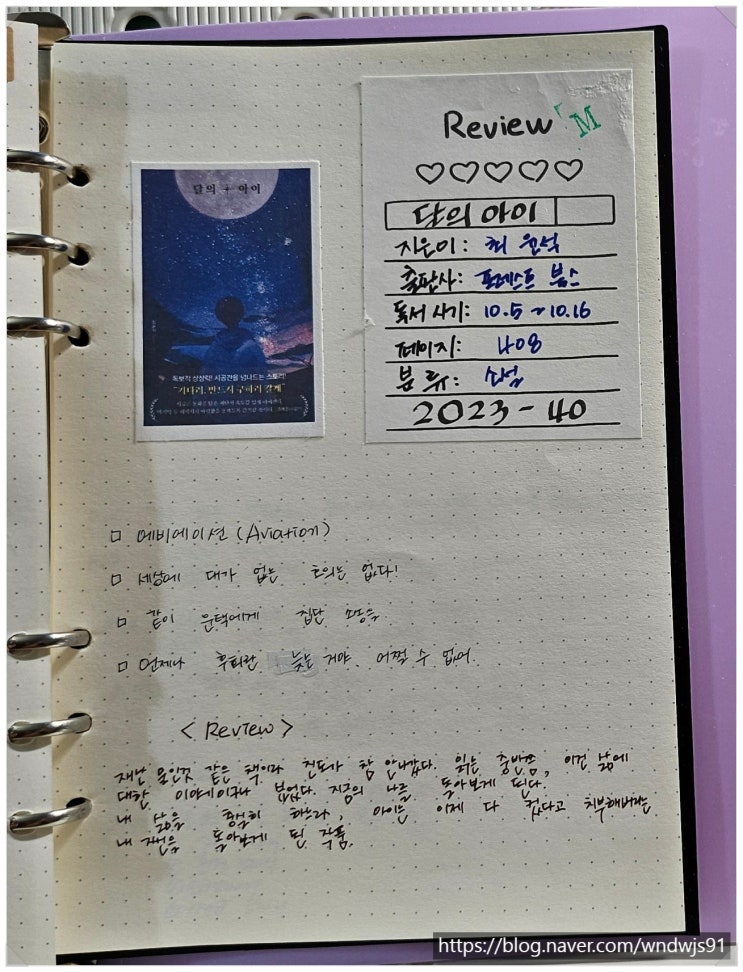 Review
M
달의 + 아이
달의 아이
지은이: 최윤석
출판사: 포레스트 북스
독서 시기: 10.5 ~ 10.16
페이지: 408
분류: 소설
2023 - 40
독보적 상상력! 시공간을 넘나드는 스토리!
"기다려, 반드시 구하러 갈게"
□ 에비에이션 (Aviation)
□ 세상에 대가 없는 호의는 없다!
□ 같이 운택에게 집단
□ 언제나 후회란 늦는 거야. 어쩔 수 없어.
< Review >
재난 물인것 같은 책이라 진도가 참 안나갔다. 읽는 중반쯤, 이건 삶에
대한 이야기이구나 싶었다. 지금의 나를 돌아보게 된다.
내 삶을 하느라, 아이는 이제 다 컸다고 치부해버리는
내 자신을 돌아보게 된 작품.
https://blog.naver.com/wndwjs91